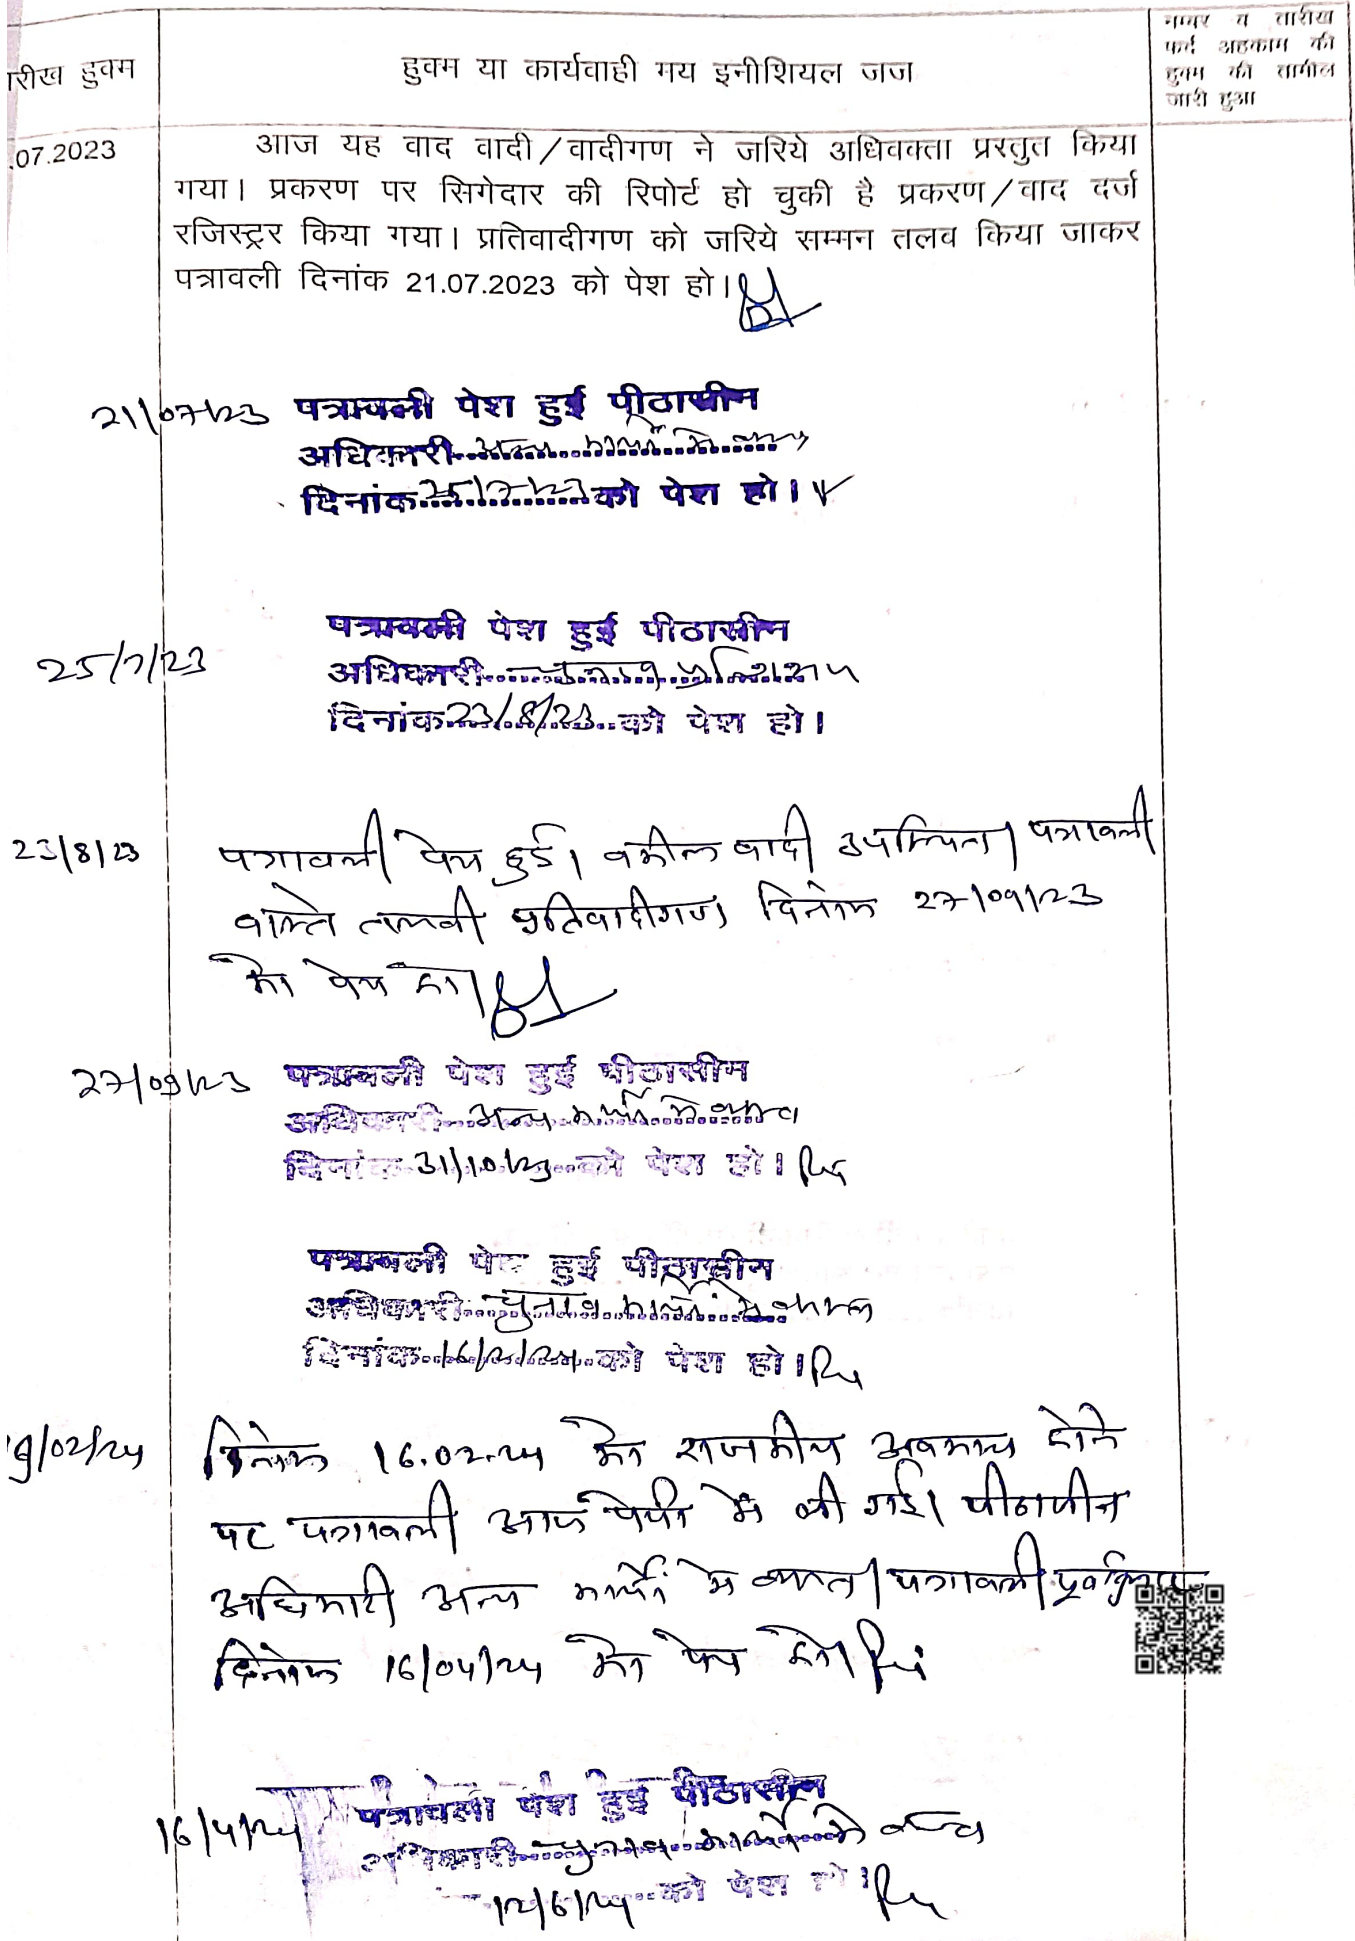 नम्बर व तारीख
फर्द अहकाम की
हुक्म की तामील
जारी हुआ
रीख हुक्म
हुक्म या कार्यवाही मय इनीशियल जज
.07.2023
आज यह वाद वादी/वादीगण ने जरिये अधिवक्ता प्रस्तुत किया
गया। प्रकरण पर सिगेदार की रिपोर्ट हो चुकी है प्रकरण/वाद दर्ज
रजिस्ट्रर किया गया। प्रतिवादीगण को जरिये सम्मन तलव किया जाकर
पत्रावली दिनांक 21.07.2023 को पेश हो।
21/07/23 पत्रावली पेश हुई पीठासीन
अधिकारी अन्य कार्यों में व्यस्त
दिनांक 25/7/23 को पेश हो।
पत्रावली पेश हुई पीठासीन
25/7/23 अधिकारी चुनाव प्रशिक्षण
दिनांक 23/8/23 को पेश हो।
23/8/23 पत्रावली पेश हुई। वकील वादी उपस्थित। पत्रावली
वास्ते तलबी प्रतिवादीगण दिनांक 27/09/23
को पेश हो।
27/09/23 पत्रावली पेश हुई पीठासीन
अधिकारी अन्य कार्यों में व्यस्त
दिनांक 31/10/23 को पेश हो।
पत्रावली पेश हुई पीठासीन
अधिकारी चुनाव कार्यों में व्यस्त
दिनांक 16/2/24 को पेश हो।
19/02/24 दिनांक 16.02.24 को राजकीय अवकाश होने
पर पत्रावली आज पेशी में ली गई। पीठासीन
अधिकारी अन्य कार्यों में व्यस्त। पत्रावली पूर्वानुसार
दिनांक 16/04/24 को पेश हो।
16/4/24 पत्रावली पेश हुई पीठासीन
अधिकारी चुनाव कार्यों में व्यस्त
12/6/24 को पेश हो।